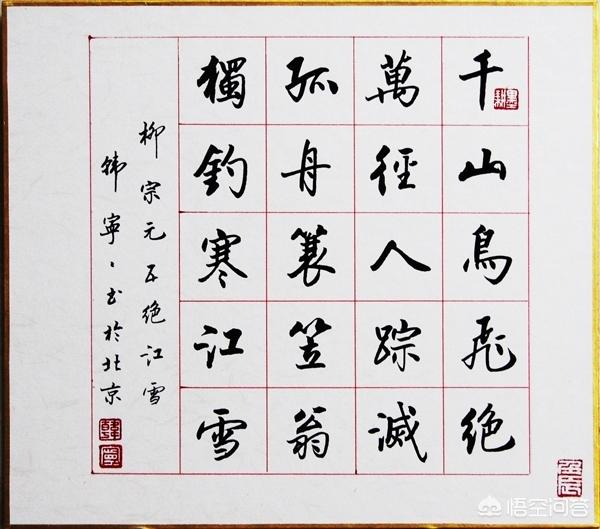 千山鳥飛絕
萬徑人踪滅
孤舟簑笠翁
獨釣寒江雪
柳宗元五绝江雪
韩寧〻书於北京
悟空问答